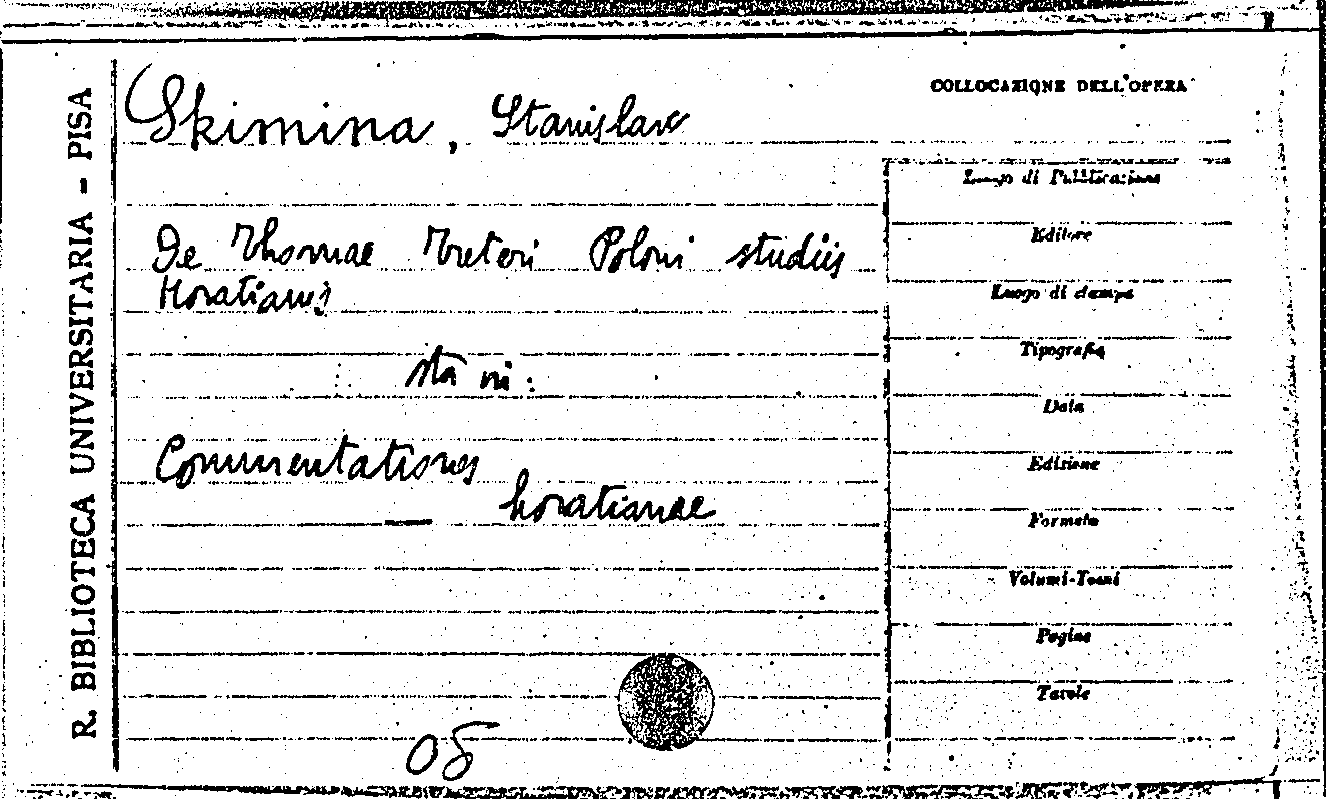 R. BIBLIOTECA UNIVERSITARIA - PISA
Skimina, Stanislaw
COLLOCAZIONE DELL'OPERA
De Thomae Treteri Poloni studiis
Horatianis
sta in:
Commentationes
horatianae
Luogo di Pubblicazione
Editore
Luogo di stampa
Tipografia
Data
Edizione
Formato
Volumi-Tomi
Pagine
Tavole